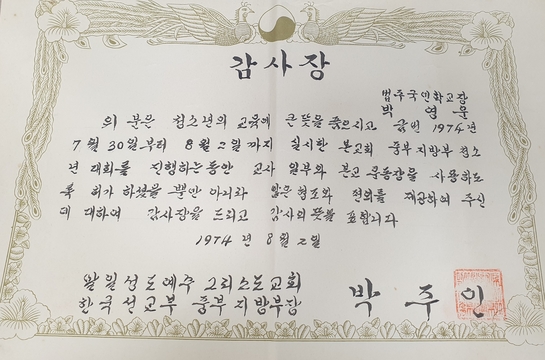 감사장
법주국민학교장
박영운
위 분은 청소년의 교육에 큰 뜻을 품으시고 금번 1974년
7월 30일부터 8월 2일까지 실시한 본교회 중부지방부 청소
년 대회를 진행하는동안 교사 일부와 본교 운동장을 사용하도
록 허가 하셨을 뿐만 아니라 많은 협조와 편의를 제공하여 주신
데 대하여 감사장을 드리고 감사의 뜻을 표합니다
1974년 8월 2일
말일성도예수 그리스도교회
한국선교부 중부지방부장 박주인